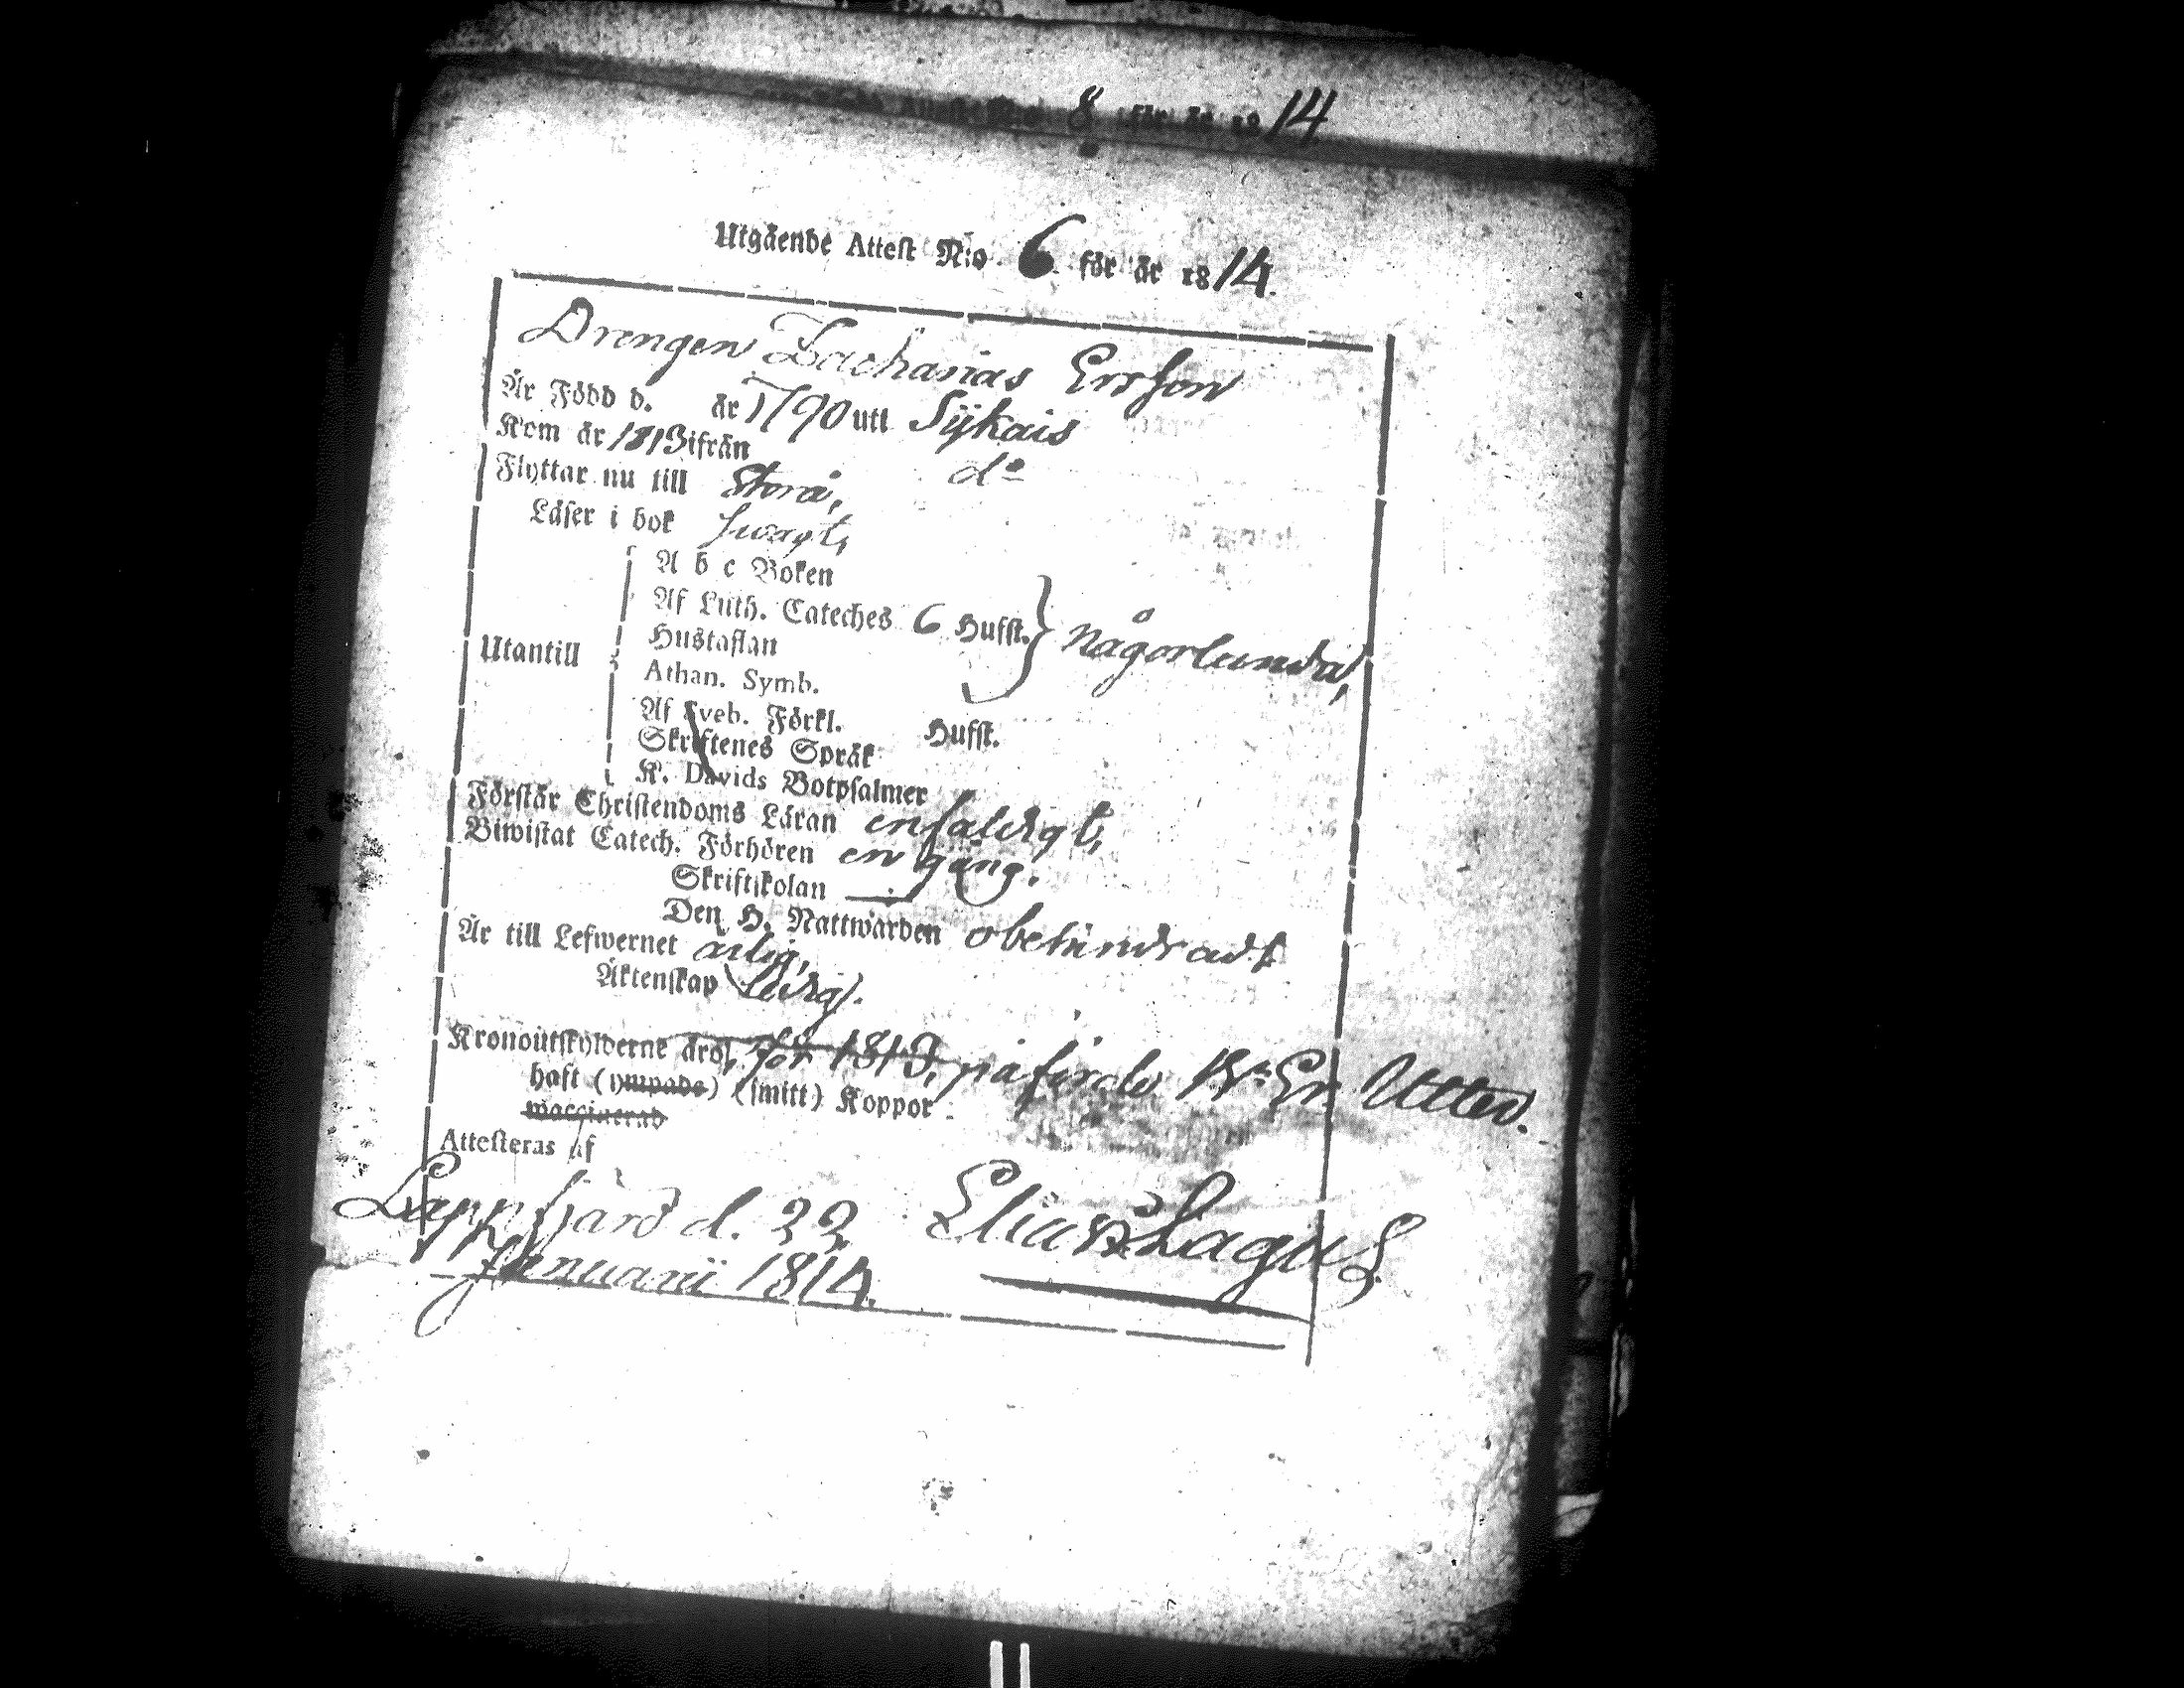 8 för år 1814
Utgående Attest N:o 6 för år 1814.
Drengen Zacharias Ersson
Är Född d. år 1790 uti Sijkais
Kom år 1813 ifrån d:o
Flyttar nu till Storå,
Läser i bok svagt,
A b c Boken
Af Luth. Cateches 6 Hufst. någorlunda,
Hustaflan
Utantill
Athan. Symb.
Af Sveb. Förkl. Hufst.
Skriftenes Språk
K. Davids Botpsalmer
Förstår Christendoms Läran enfaldigt,
Biwistat Catech. Förhören en gång.
Skriftskolan
Den H. Nattwarden obehindradt
Är till Lefwernet ärlig,
Äktenskap ledig.
Kronoutskylderne äro, för 1813, påförde Er. Utter.
haft (ympade) (smitt) Koppor
waccinerad
Attesteras af
Lappfjärd d. 22 Elias Lagus
Januarii 1814.